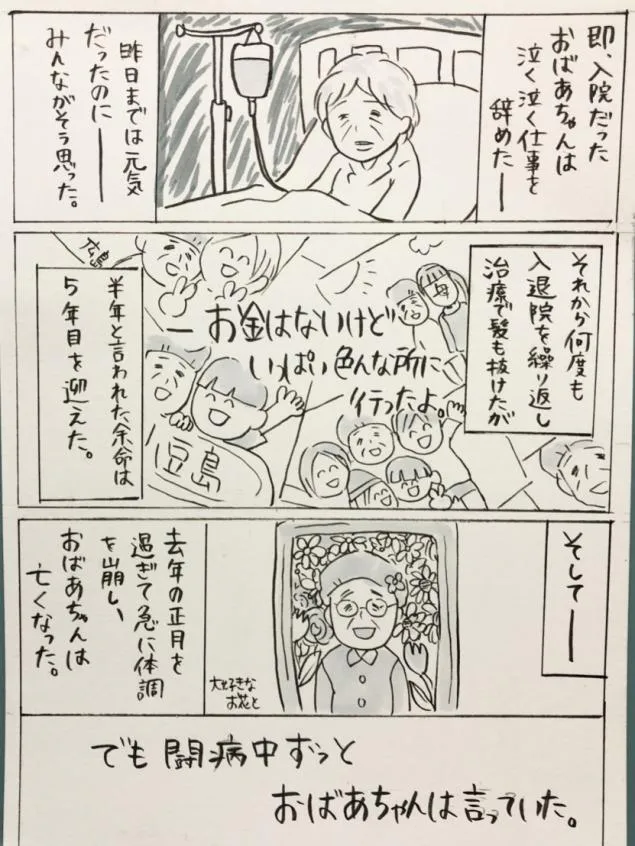 即、入院だった
おばあちゃんは
泣く泣く仕事を
辞めたー
昨日までは元気
だったのに――
みんながそう思った。
それから何度も
入退院を繰り返し
治療で髪も抜けたが
―お金はないけど
いっぱい色んな所に
行ったよ。
小豆島
半年と言われた余命は
5年目を迎えた。
そして――
大好きな
お花と
去年の正月を
過ぎて急に体調
を崩し、
おばあちゃんは
亡くなった。
でも闘病中ずっと
おばあちゃんは言っていた。